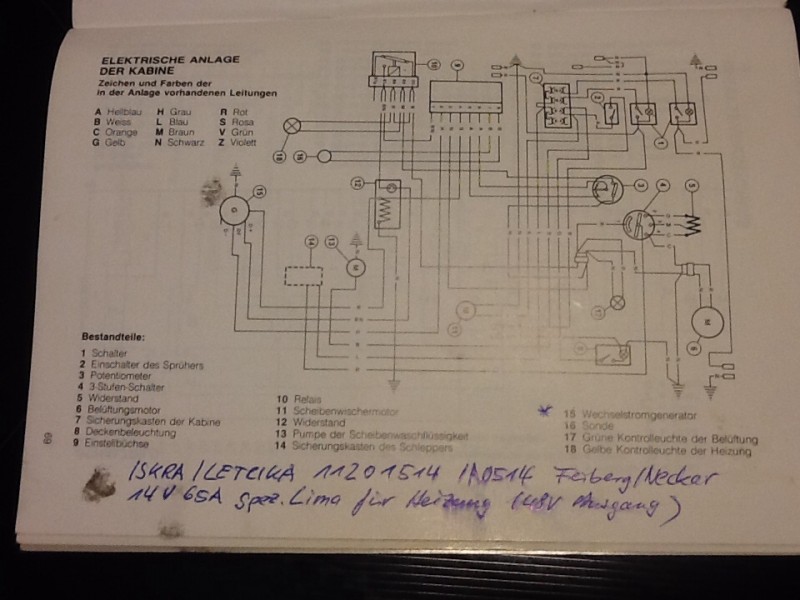 ELEKTRISCHE ANLAGE
DER KABINE
Zeichen und Farben der
in der Anlage vorhandenen Leitungen
A Hellblau H Grau R Rot
B Weiss L Blau S Rosa
C Orange M Braun V Grün
G Gelb N Schwarz Z Violett
10 9 7 2 1
18 16 12 3 4 5
15 14 13 11 17 6 8
M
Bestandteile:
1 Schalter
2 Einschalter des Sprühers
3 Potentiometer
4 3-Stufen-Schalter
5 Widerstand
6 Belüftungsmotor
7 Sicherungskasten der Kabine
8 Deckenbeleuchtung
9 Einstellbüchse
10 Relais
11 Scheibenwischermotor
12 Widerstand
13 Pumpe der Scheibenwaschflüssigkeit
14 Sicherungskasten des Schleppers
* 15 Wechselstromgenerator
16 Sonde
17 Grüne Kontrolleuchte der Belüftung
18 Gelbe Kontrolleuchte der Heizung
69
ISKRA/LETRIKA 11201514 Feiberg/Neckar
14V 65A Spez. Lima für Heizung (48V Ausgang)